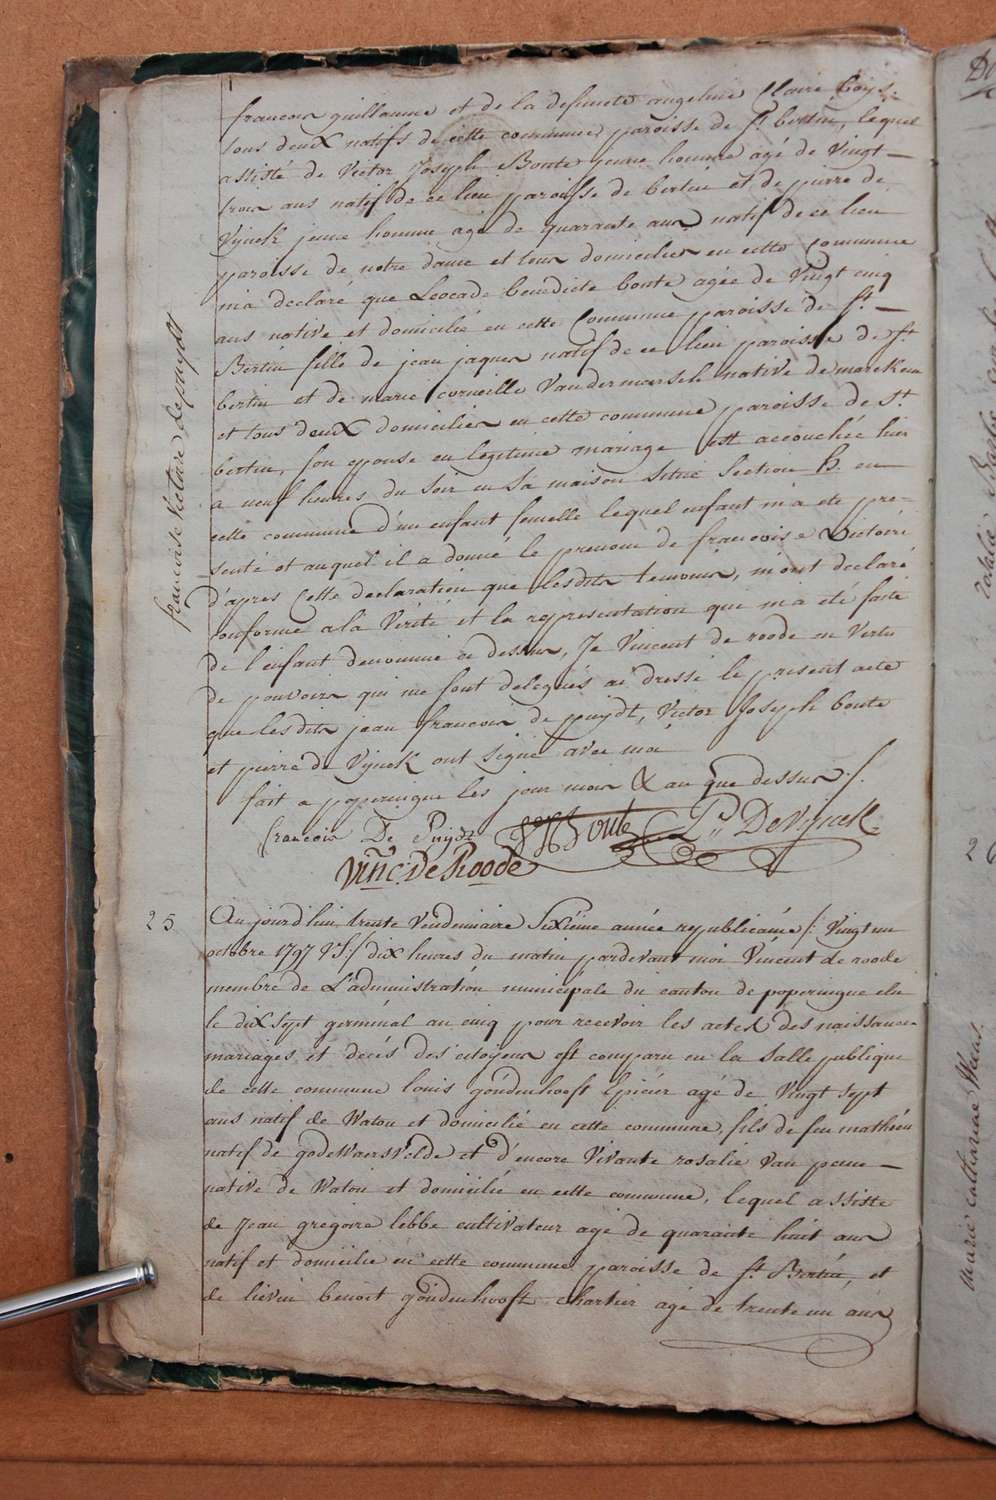 francois guillaume et de la defuncte angeline Claire Coys.
tous deux natifs de cette commune paroisse de St bertin, lequel
assisté de Victor Joseph Boute jeune homme agé de Vingt –
trois ans natif de ce lieu paroisse de bertin et de pierre de
Vynck jeune homme agé de quarante ans natif de ce lieu
paroisse de notre dame et tous domiciliés en cette Commune
m'a declaré que Leocade benedicte boute agée de Vingt cinq
ans native et domicilié en cette Commune paroisse de St. –
Bertin fille de jean jaques natif de ce lieu paroisse de St
bertin et de marie corneille Vandermarsch native de
et tous deux domiciliés en cette commune paroisse de St.
bertin, son epouse en legitime mariage est accouchée hier
à neuf heures du soir en sa maison située Section h. en
cette commune d'un enfant femelle lequel enfant m'a eté pre=
senté et auquel il a donné le prenom de françoise Victoire
d'apres Cette declaration que lesdits temoins, m'ont declaré
conforme a la Vérité et la representation qui m'a été faite
de l'enfant denommé ci dessus, Je Vincent de roode en Vertu
de pouvoirs qui me sont delegués ai dressé le present acte
que lesdits jean francois de puydt, Victor Joseph boute
et pierre de Vynck ont signé avec moi
fait a poperingue les jour mois & an que dessus ./.
francois De Puydt Boute P: DeVynck
Vinc: De Roode
francoise Victoire depuydt
25
Au jourd'hui trente Vendemiaire Sixiéme année republicaine /: Vingt un
octobre 1797 VS:/ dix heures du matin pardevant moi Vincent de roode
membre de L'administration municipale du canton de poperingue elu
le dix sept germinal an cinq pour recevoir les actes des naissances
mariages et décés des citoyens est comparu en la Salle publique
de cette commune louis goudenhooft Epicier agé de Vingt sept
ans natif de Watou et domicilié en cette commune, fils de feu mathieu
natif de godewaersvelde et d'encore Vivante rosalie Van peene –
native de Watou et domicilié en cette commune, lequel assisté
de Jean gregoire lebbe cultivateur agé de quarante huit ans
natif et domicilié en cette commune paroisse de St Bertin, et
de lievin benoit goudenhooft chartier agé de trente un ans
2
marie catherine